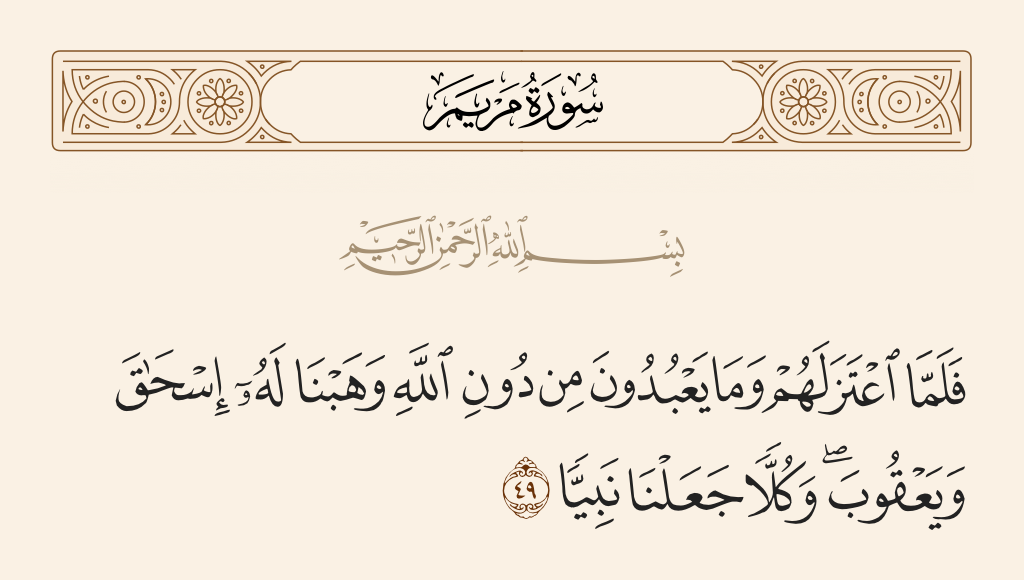 سُورَةُ مَرْيَمَ
بِسْمِ ٱللَّهِ ٱلرَّحْمَٰنِ ٱلرَّحِيمِ
فَلَمَّا ٱعْتَزَلَهُمْ وَمَا يَعْبُدُونَ مِن دُونِ ٱللَّهِ وَهَبْنَا لَهُۥٓ إِسْحَٰقَ
وَيَعْقُوبَ ۖ وَكُلًّا جَعَلْنَا نَبِيًّا ٤٩